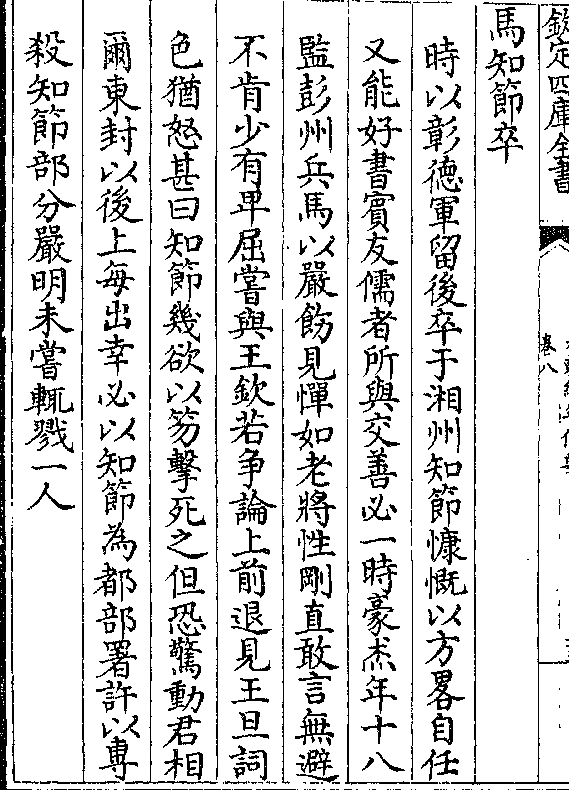 欽定四庫全書
卷八
馬知節卒
時以彰德軍留後卒于湘州知節慷慨以方畧自任
又能好書賓友儒者所與交善必一時豪杰年十八
監彭州兵馬以嚴飭見憚如老將性剛直敢言無避
不肯少有卑屈嘗與王欽若争論上前退見王旦詞
色猶怒甚曰知節幾欲以笏擊死之但恐驚動君相
爾東封以後上每出幸必以知節為都部署許以專
殺知節部分嚴明未嘗輒戮一人